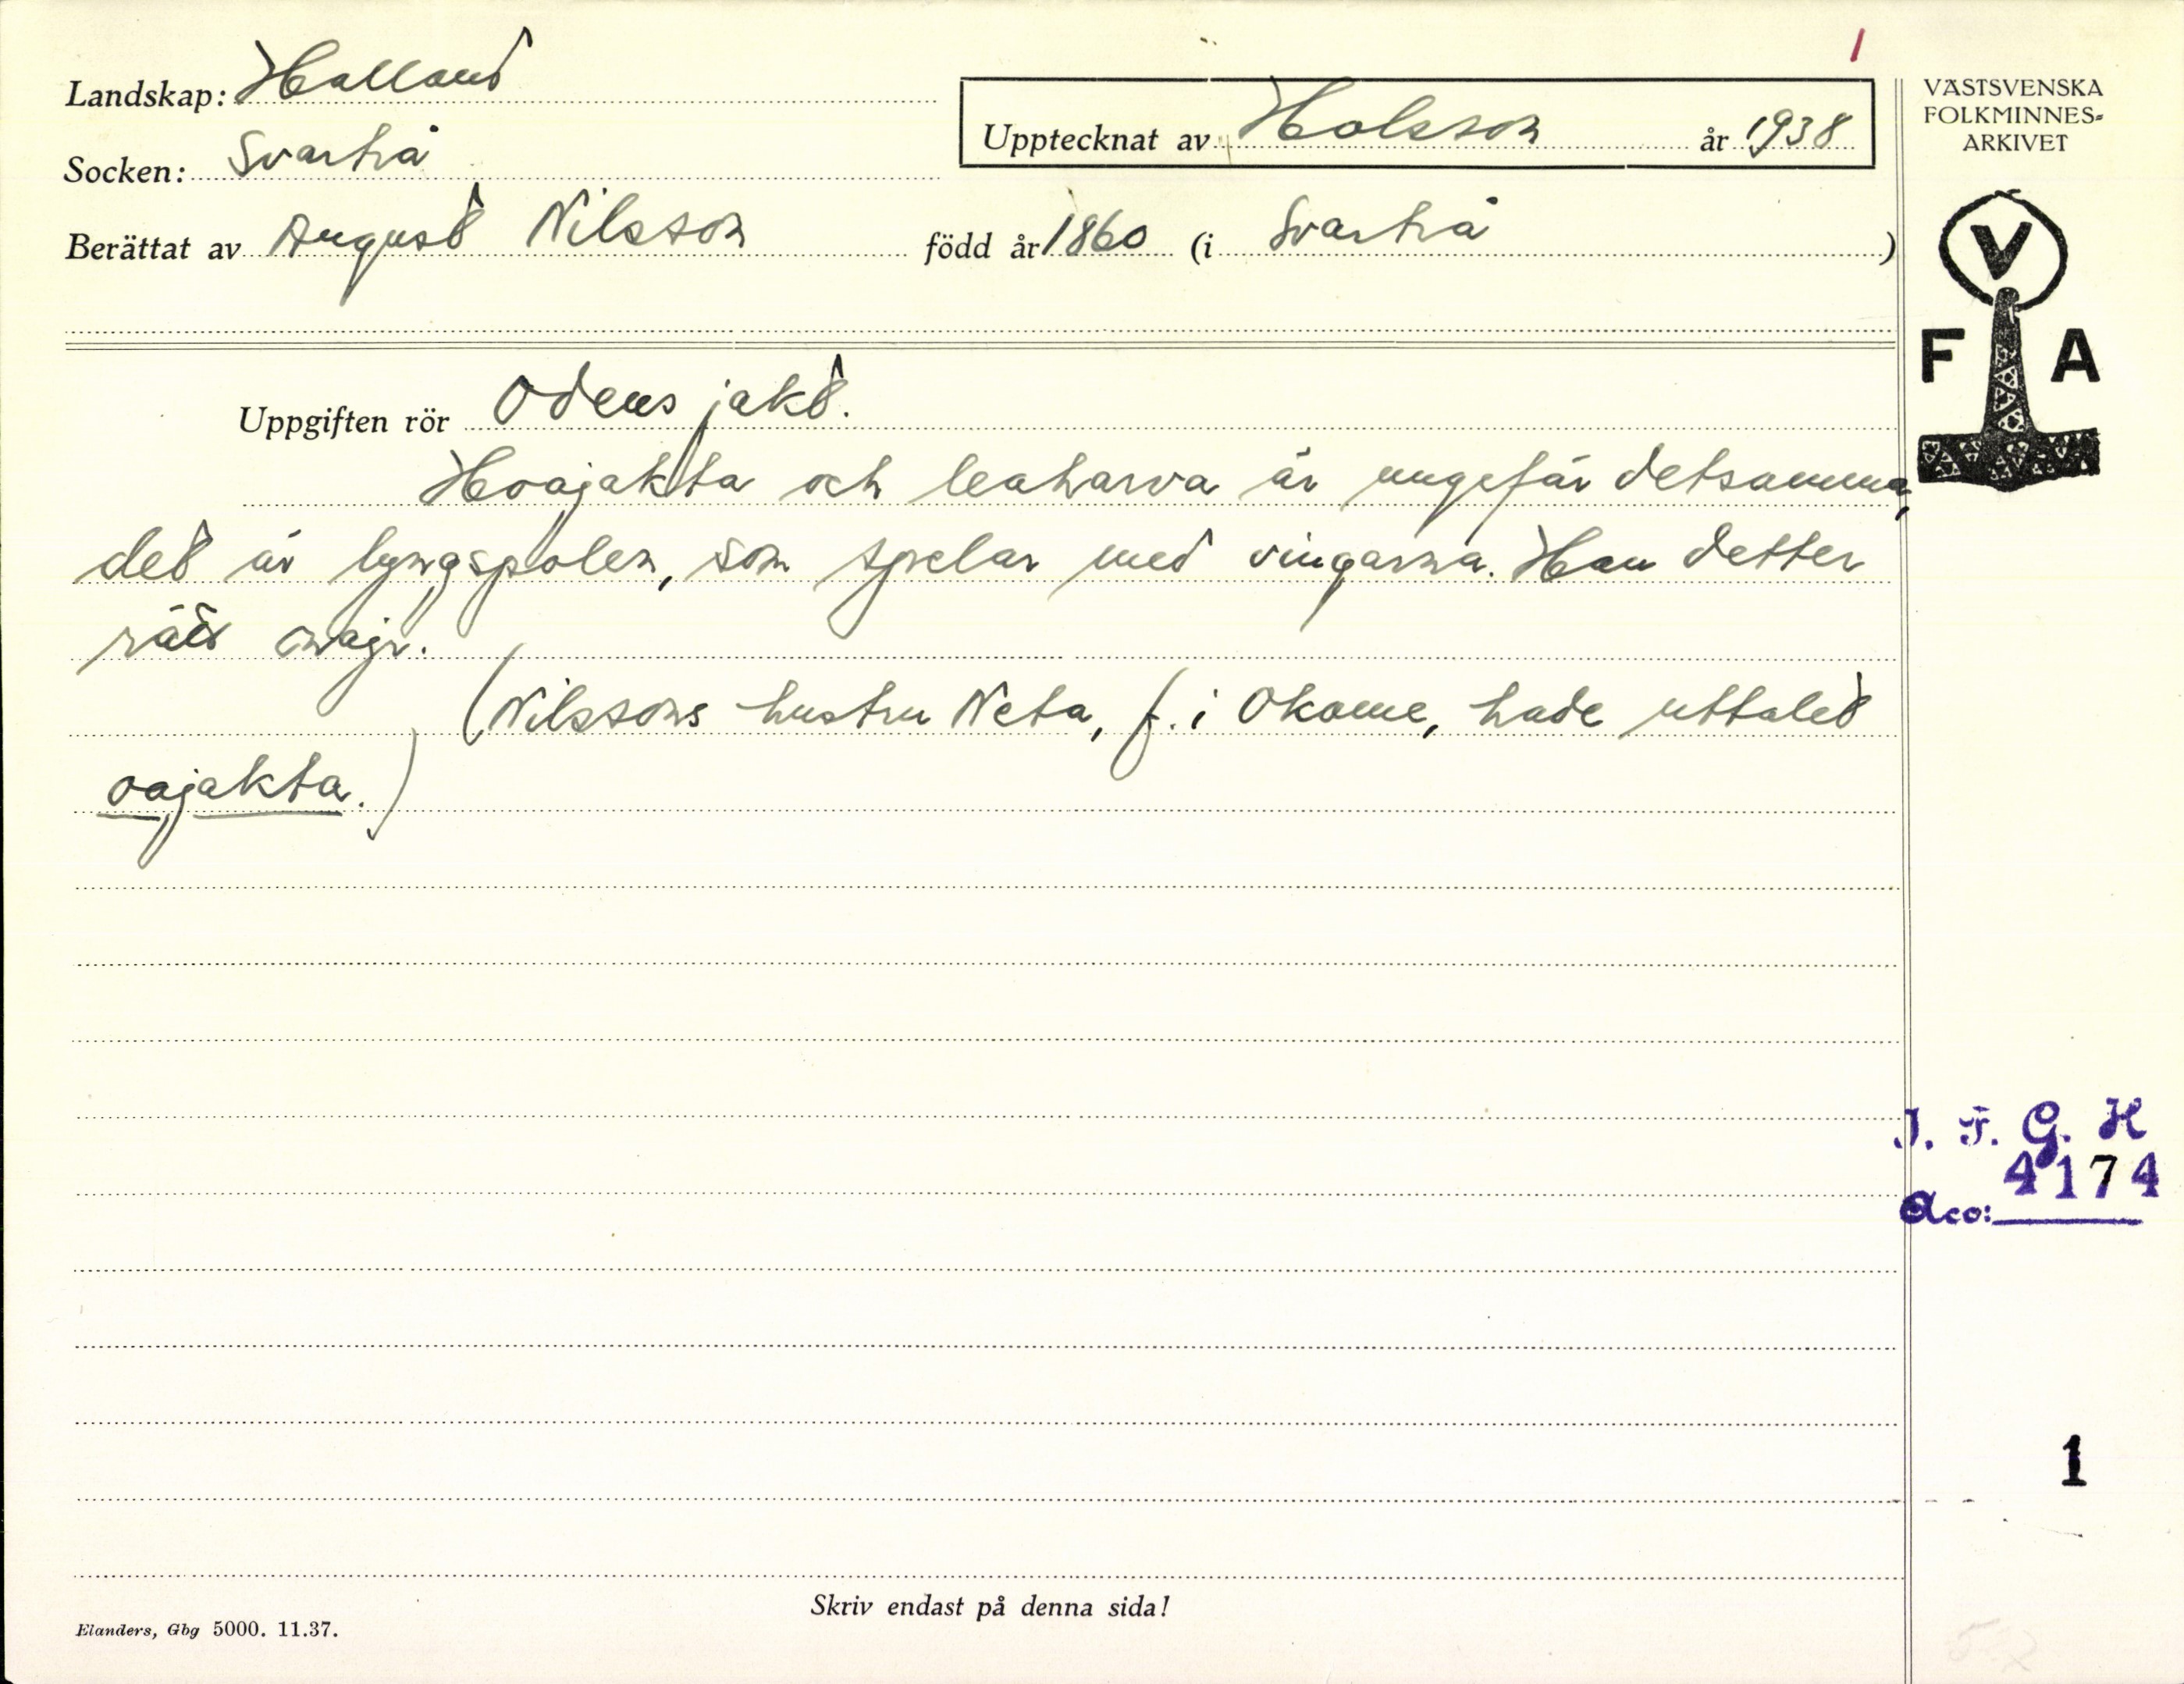 1
Landskap: Halland
Socken: Svartrå
Upptecknat av Holsson år 1938
Berättat av August Nilsson född år 1860 (i Svartrå )
VÄSTSVENSKA
FOLKMINNES-
ARKIVET
V
F A
Uppgiften rör Odens jakt.
Hoajakta och leaharva är ungefär detsamma,
det är lyngspolen, som spelar med vingarna. Han detter
rätt
(Nilssons hustru Neta, f. i Okome, hade uttalet
oajakta.)
I. F. G. H
4174
Acc:
1
Skriv endast på denna sida!
Elanders, Gbg 5000. 11.37.